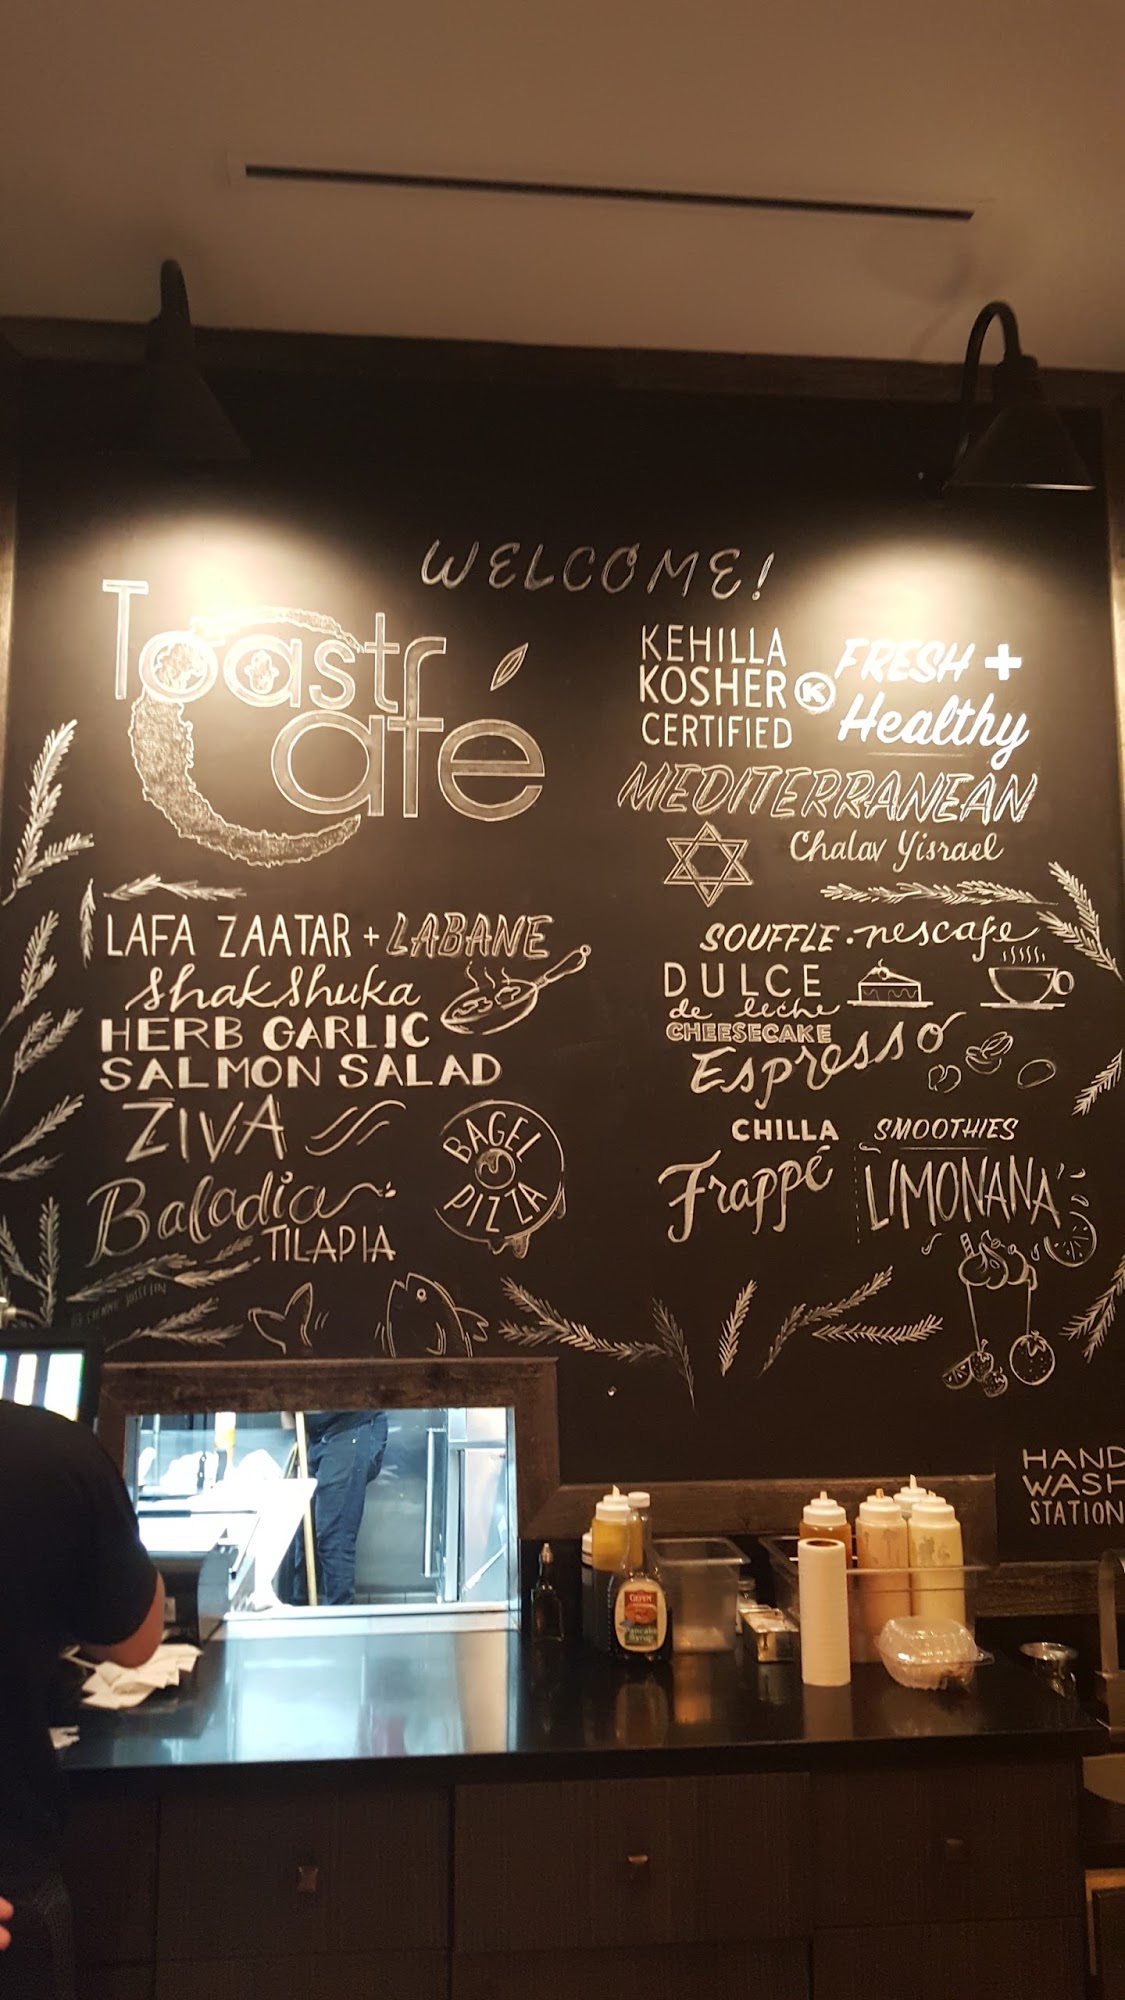 WELCOME!
Toast
Café
KEHILLA
KOSHER
CERTIFIED
K
FRESH +
Healthy
MEDITERRANEAN
Chalav Yisrael
LAFA ZAATAR + LABANE
Shakshuka
HERB GARLIC
SALMON SALAD
ZIVA
Baladia
TILAPIA
BAGEL
PIZZA
SOUFFLE · nescafe
DULCE
de leche
CHEESECAKE
Espresso
CHILLA
Frappé
SMOOTHIES
LIMONANA
HAND
WASH
STATION
Pancake
Syrup